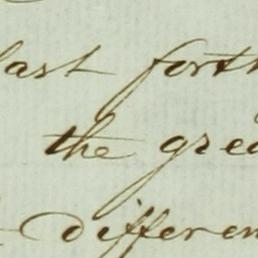 last forth
the grea
differen